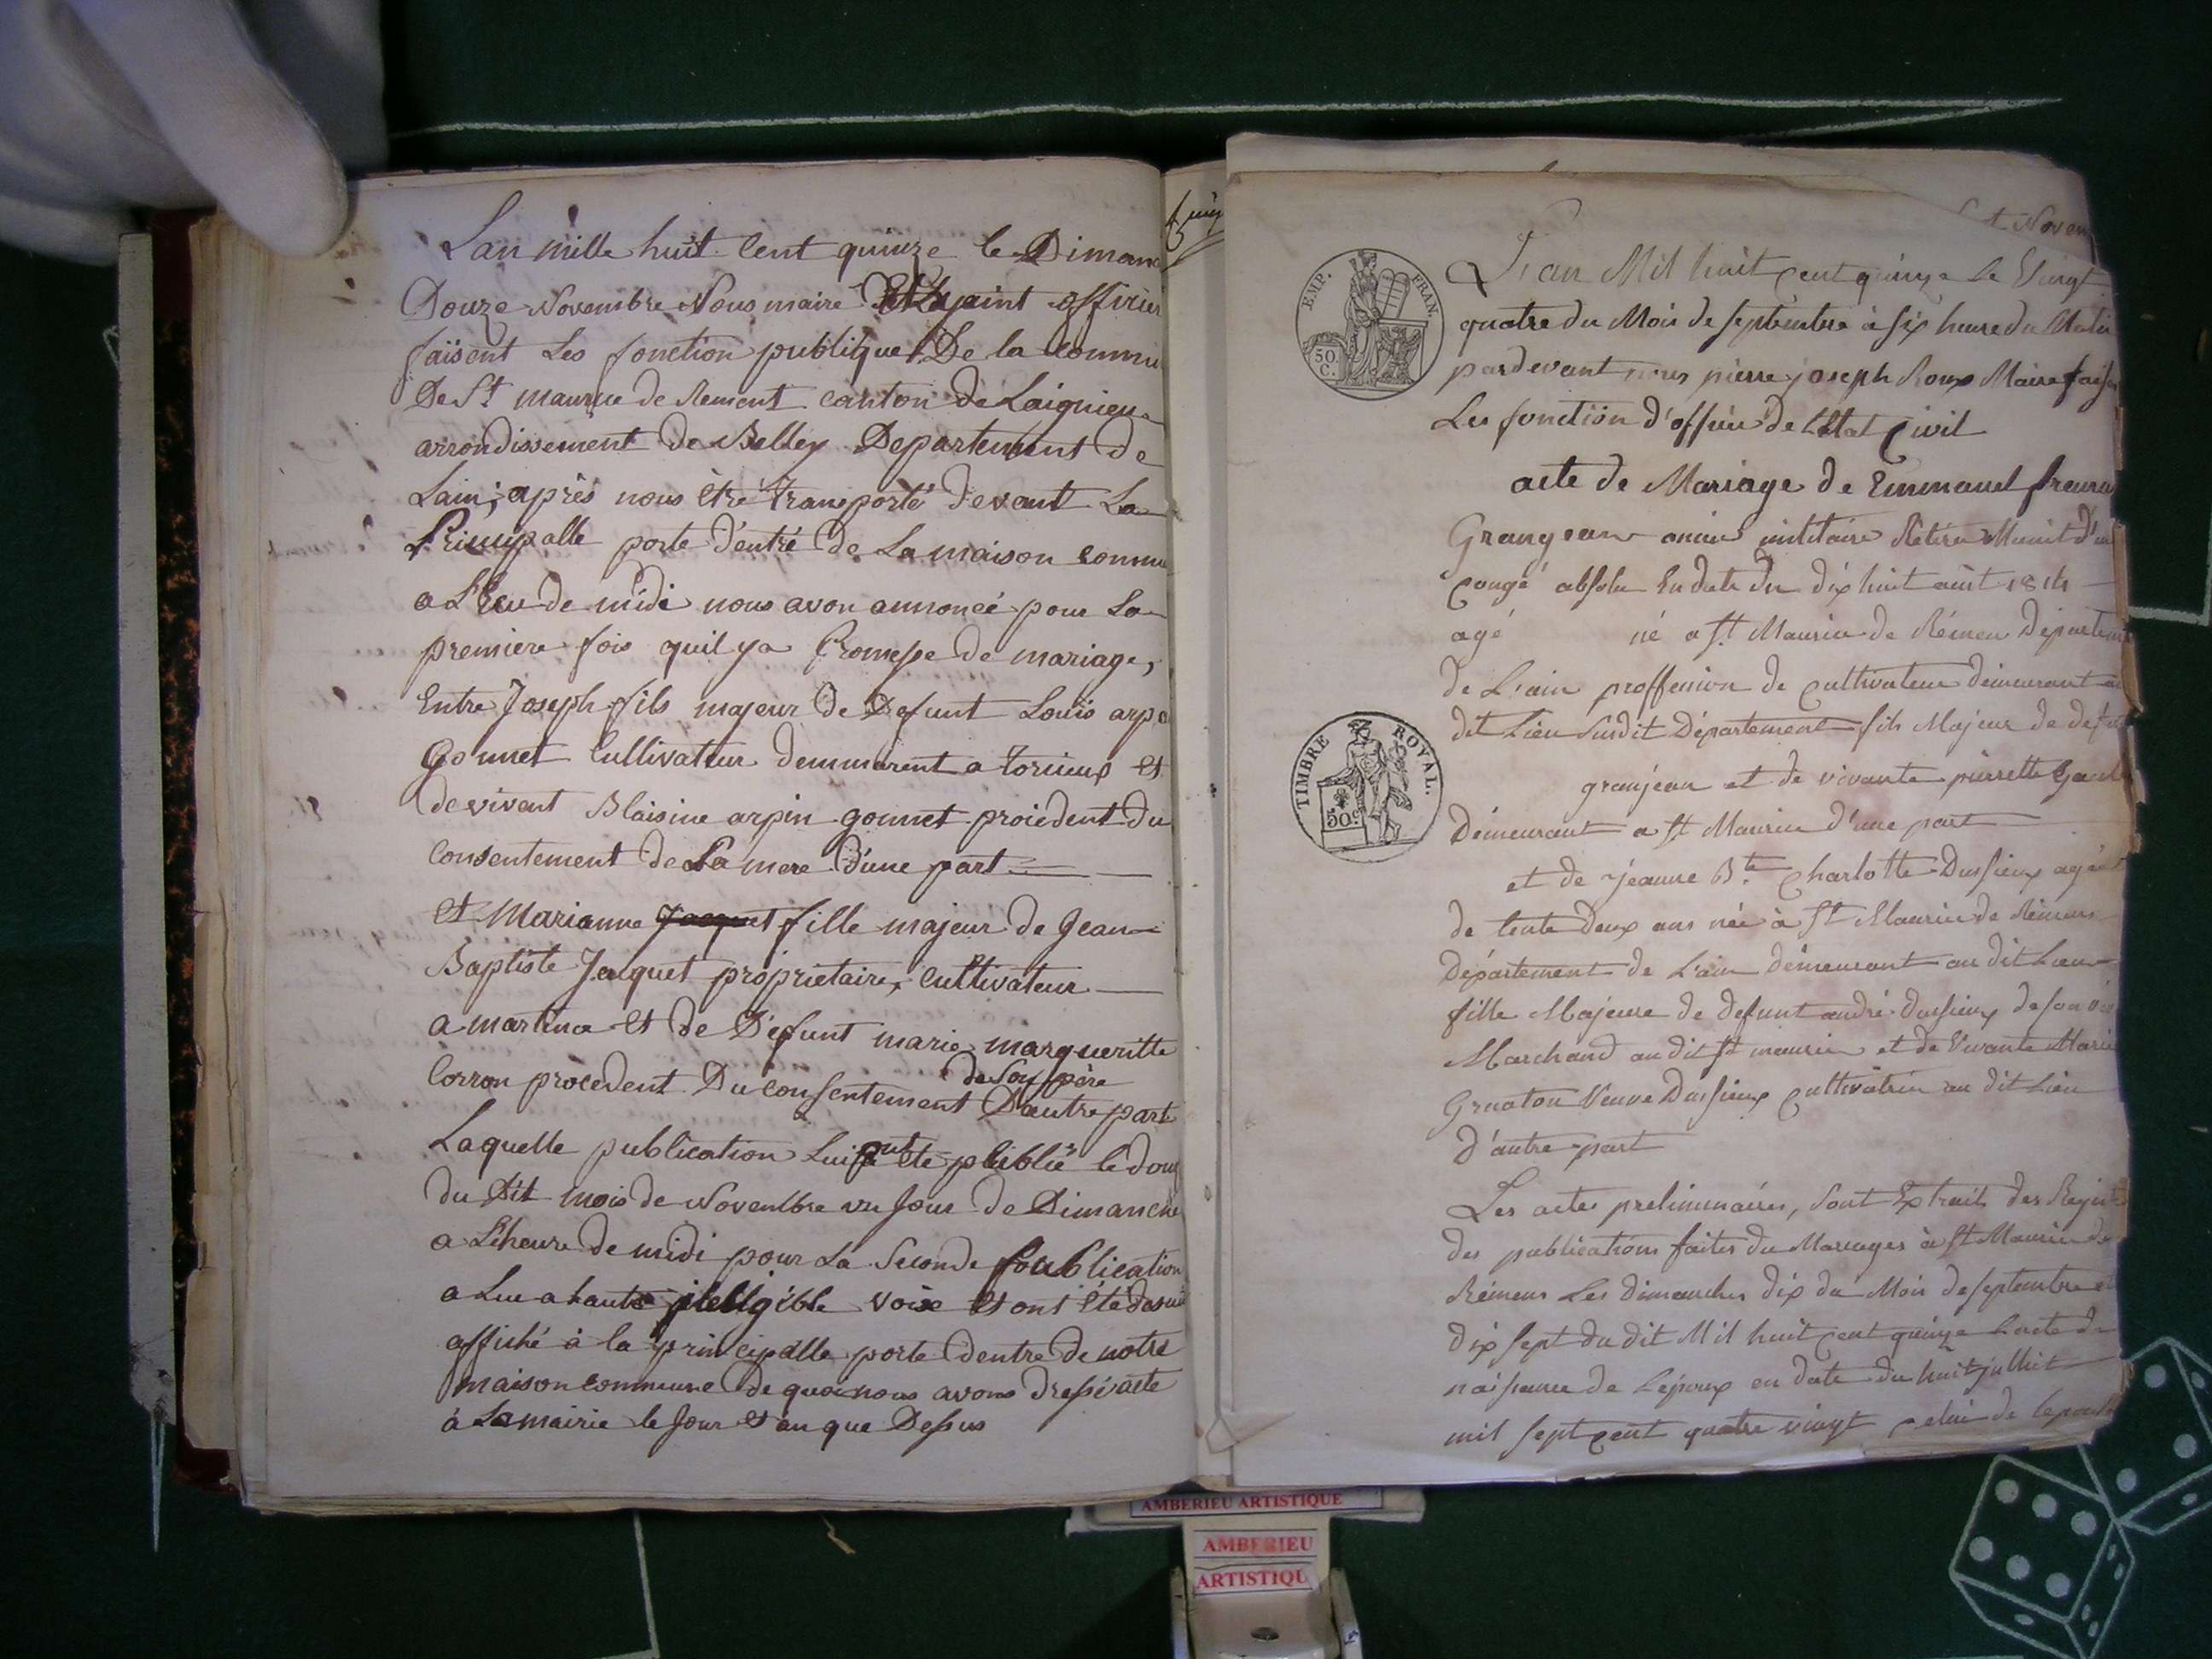 Lan mille huit Cent quinze le Diman
Douze Novembre Nous maire officier
faisent Les fonction publique De la commu
De St maurice de Remens canton de Laignieu
arrondissement de Belley Departement de
Lain; après nous être transporté devant La
Principalle porte d'entré de La maison commu
a L'heu de midi nous avon annoncé pour La
premiere fois quil ya Promesse de mariage,
Entre Joseph fils majeur de Defunt Louis arpin
Gonnet Cultivateur demmurent a torcieux et
de vivent Blaisine arpin gonnet procédent du
Consentement de La mere d'une part
et Marianne Jacquet fille majeur de Jean
Baptiste Jaquet propriétaire, Cultivateur
a martinaz et de Defunt marie margueritte
Corron procedent Du consentement de Son père D'autre part
Laquelle publication été publié le douz
du Dit mois de Novembre un Jour de Dimanche
a L'heure de midi pour La Seconde publication
a Lue a haute voix et ont été
affiché à la principalle porte dentre de notre
maison commune de quoi nous avons dressé acte
à La mairie le Jour et an que Dessus
t Novem
L'an Mil huit cent quinze Le Vingt
quatre du Mois de septembre à six heure du Matin
pardevant nous pierre joseph Roux Maire faisa
Les fonction d'officier de L'Etat Civil
acte de Mariage de Emmanuel
Grangean ancien militaire Retiré Munit d'un
congé absolu En date du dix huit aout 1814
agé né a St. Maurice de Rémens Départem
de L'ain proffession de cultivateur demeurant au
dit Lieu Susdit Département fils Majeur de defunt
granjean et de vivante pierrette
Demeurant a St Maurice d'une part
et de jéanne B.te Charlotte Dussieux agée
de trente deux ans née à St Maurice de Rémens
Département de L'ain démeurant au dit Lieu
fille Majeure de defunt andré Dussieux de son vi
Marchand au dit St maurice et de Vivante Marie
Gruaton Veuve Dussieux cultivatrice au dit Lieu
d'autre part
Les actes preliminaires, Sont Extraits des Regist
des publications faites du Mariages à St Maurice de
Rémens Les dimanches dix du Mois de septembre et
dix sept du dit Mil huit cent quinze L'acte de
naissance de L'epoux en date du huit juillet
mil sept cent quatre vingt celui de
EMP. FRAN.
50.
C.
TIMBRE ROYAL.
50c
AMBERIEU ARTISTIQUE
AMBERIEU
ARTISTIQU